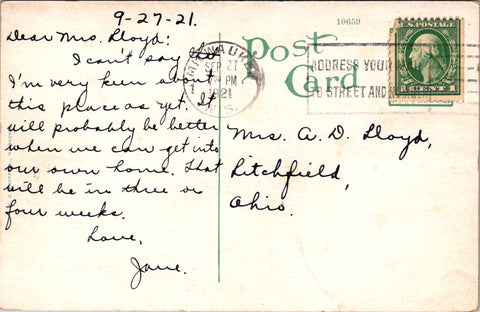 9-27-21.
Dear Mrs. Lloyd:
I can't say
I'm very keen about
this place as yet. It
will probably be better
when we can get into
our own home. That
will be in three or
four weeks.
Love,
Jane.
10659
Post
Card
MILWAUKEE
SEP 27
PM
1921
WIS.
ADDRESS YOUR
TO STREET AND
U.S. POSTAGE
1 CENT 1
Mrs. A. D. Lloyd,
Litchfield,
Ohio.